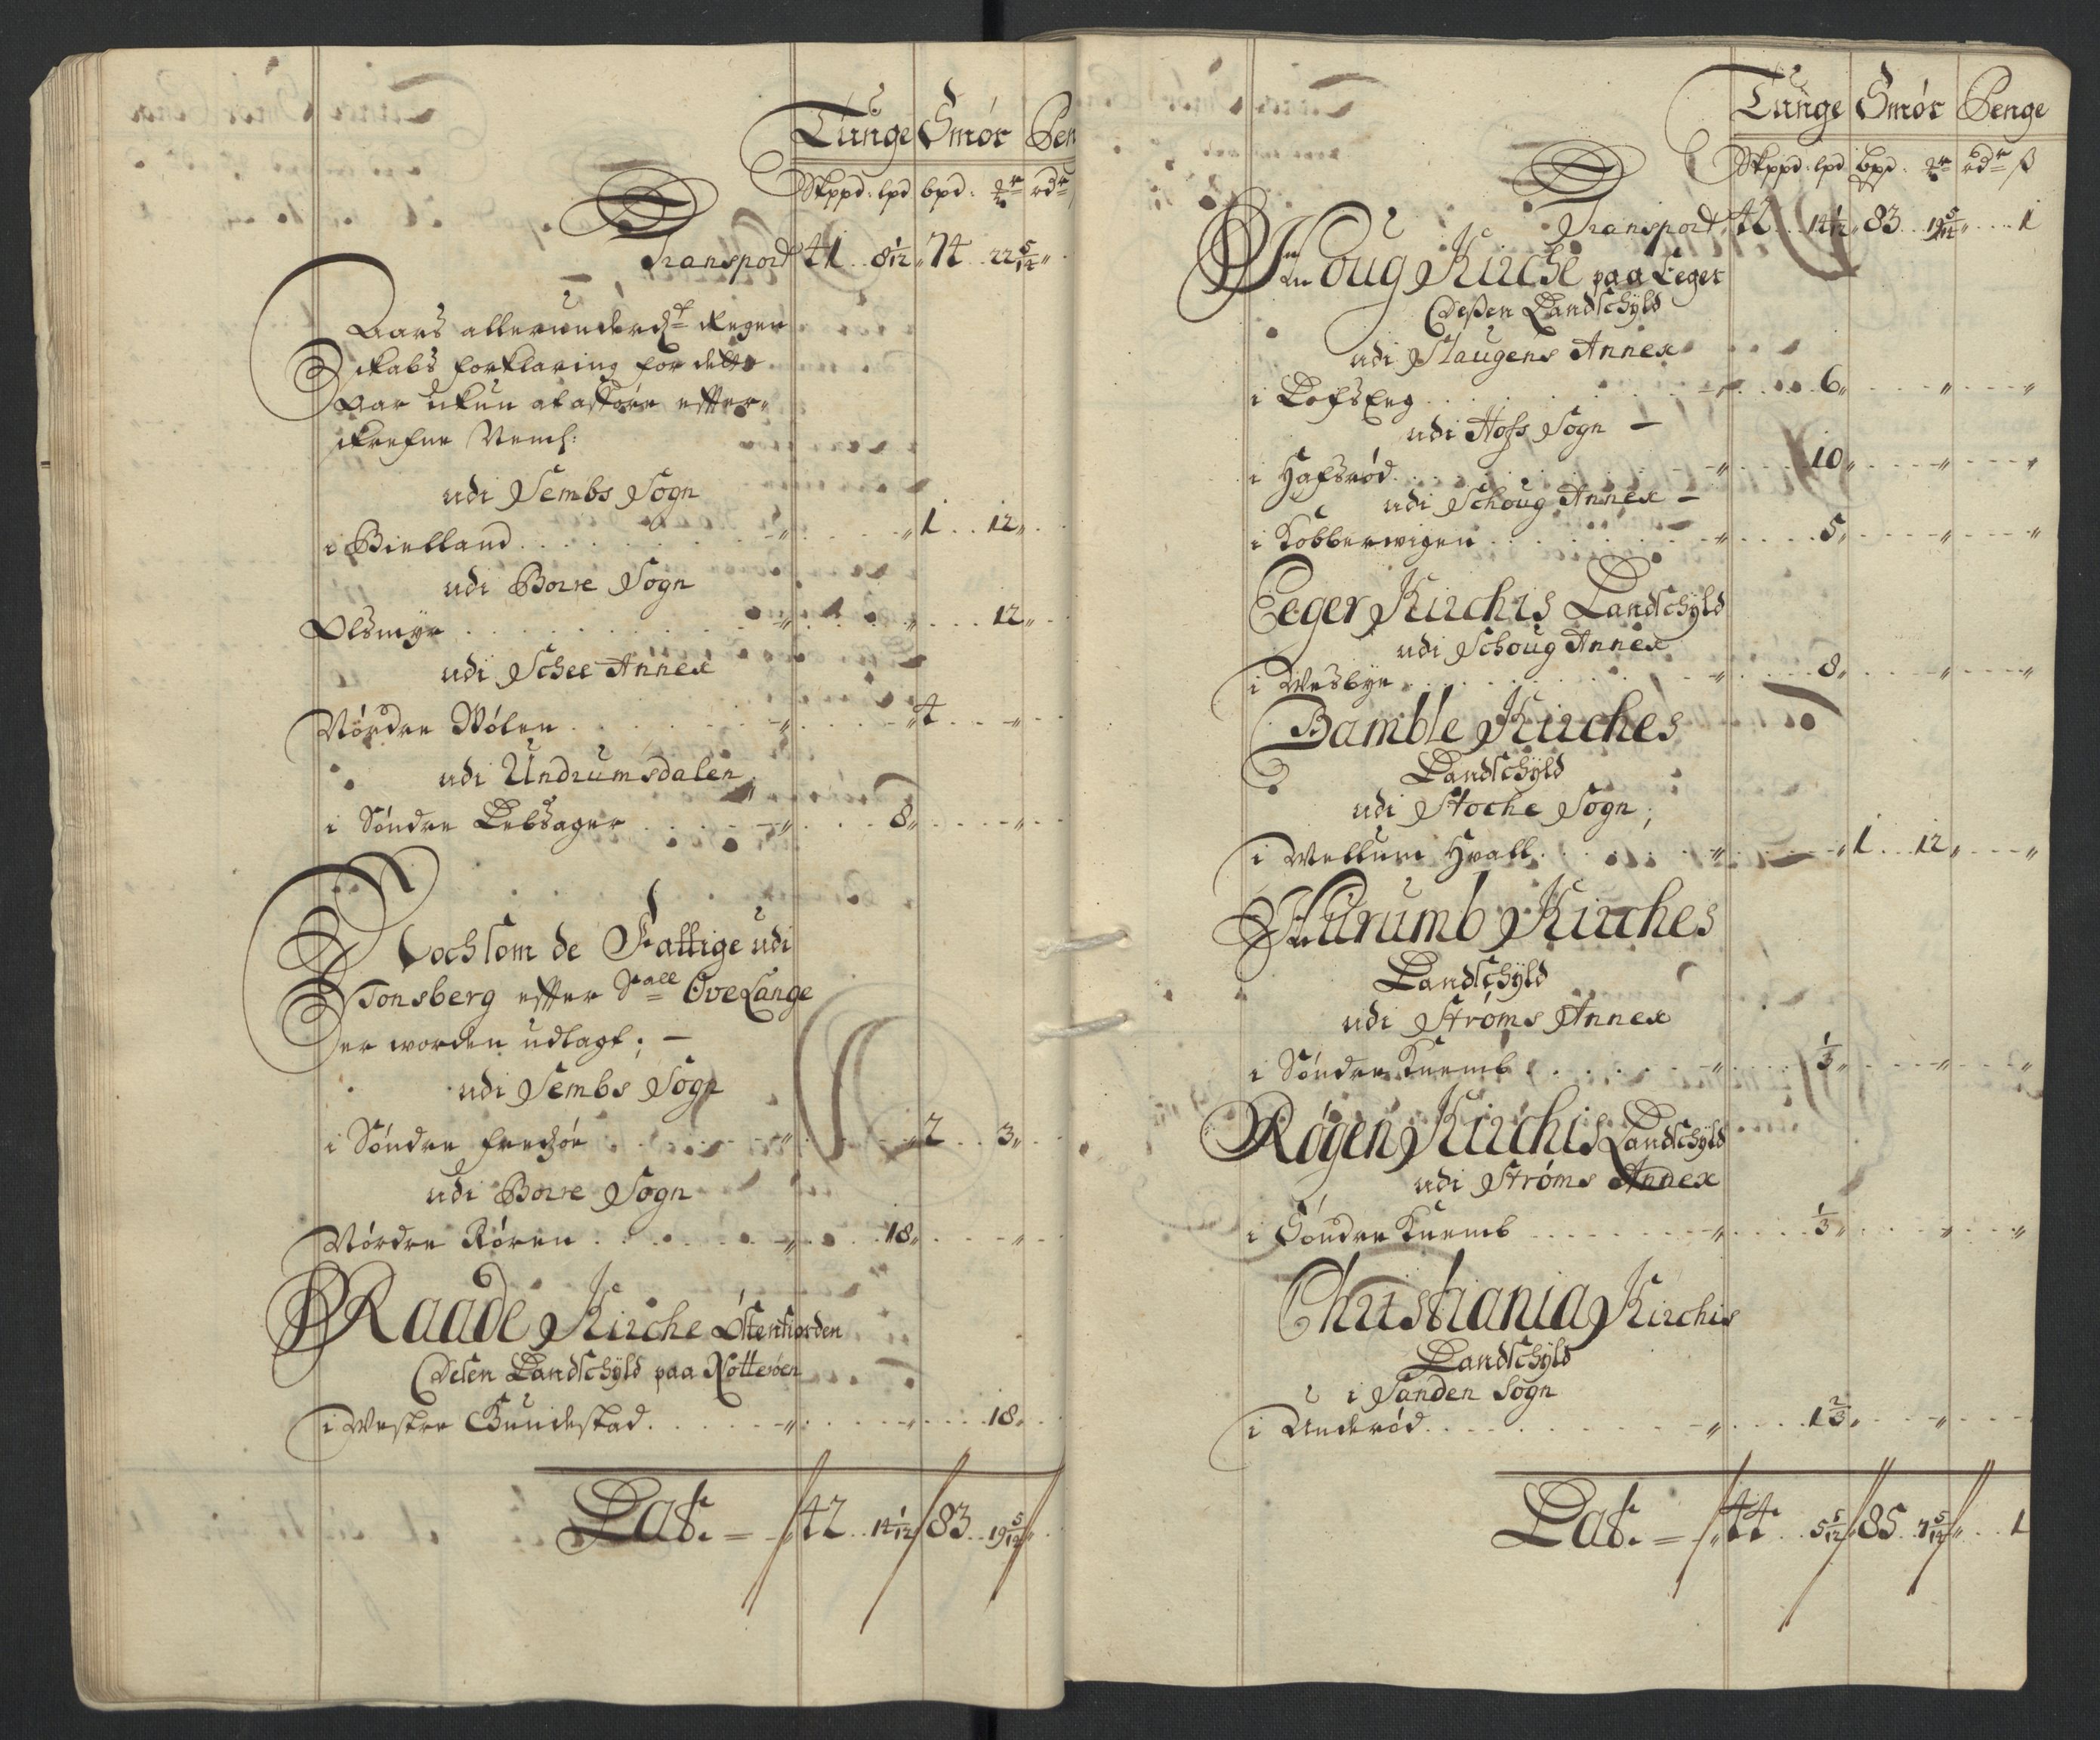 Tunge Smör Pen
Skppd: lpd bpd: rdr
Transport 41 .. 8 1/12 " 74 .. 22 5/12 "
Aars allerunderd. Regen
skabs forklaring for dette
Aar
udi Sembs Sogn
i Bielland . . . " . . . " 1 .. 12 "
udi Borre Sogn
Olsmyr . . . " . . . " . . 12 "
udi Schee Annex
Nördre Mölen . . . " . . . " 4 . . "
udi Undrumsdalen
i Söndre . . . " . . . 8 " . . . "
som de Fattige udi
Tonsberg efter Sall Ove Lange
er worden udlagt ; —
udi Sembs Sogn
i Söndre . . . " . . . " 2 .. 3 "
udi Borre Sogn
Nördre Rören . . . " . . . 18 " . . . "
Raade Kirche Östenfiorden
Desen Landschÿld paa Nötteröen
i Westre Gundestad . . . " . . . " . . 18 "
Lat. = " 42 .. 14 1/12 " 83 .. 19 5/12 "
Tunge Smör Penge
Skppd: lpd bpd: rdr ß
Transport 42 .. 14 1/12 " 83 .. 19 5/12 " . . . 1
Houg Kirche paa Eeger
Deßen Landschÿld
udi Slaugens Annex
i . . . " . . . 6 " . . . " . . . "
udi Hofs Sogn —
i Hafsröd . . . " . . . 10 " . . . " . . . "
udi Schoug Annex —
i Kobberwigen . . . " . . . 5 " . . . " . . . "
Eeger Kirchis Landschÿld
udi Schoug Annex
i Wesbye . . . " . . . 8 " . . . " . . . "
Bamble Kirches
Landschÿld
udi Stoche Sogn ;
i Wellum Hvall . . . " . . . " 1 .. 12 " . . . "
Hurumb Kirches
Landschÿld
udi Ströms Annex
i Söndre Knemb . . . " . . . 1/3 " . . . " . . . "
Rögen Kirchis Landschÿld
udi Ströms Annex
i Söndre Knemb . . . " . . . 1/3 " . . . " . . . "
Christiania Kirchis
Landschÿld
i Sanden Sogn
i Underöd . . . " . . . 1 2/3 " . . . "
Lat. = " 44 .. 5 5/12 " 85 .. 7 5/12 " . . 1